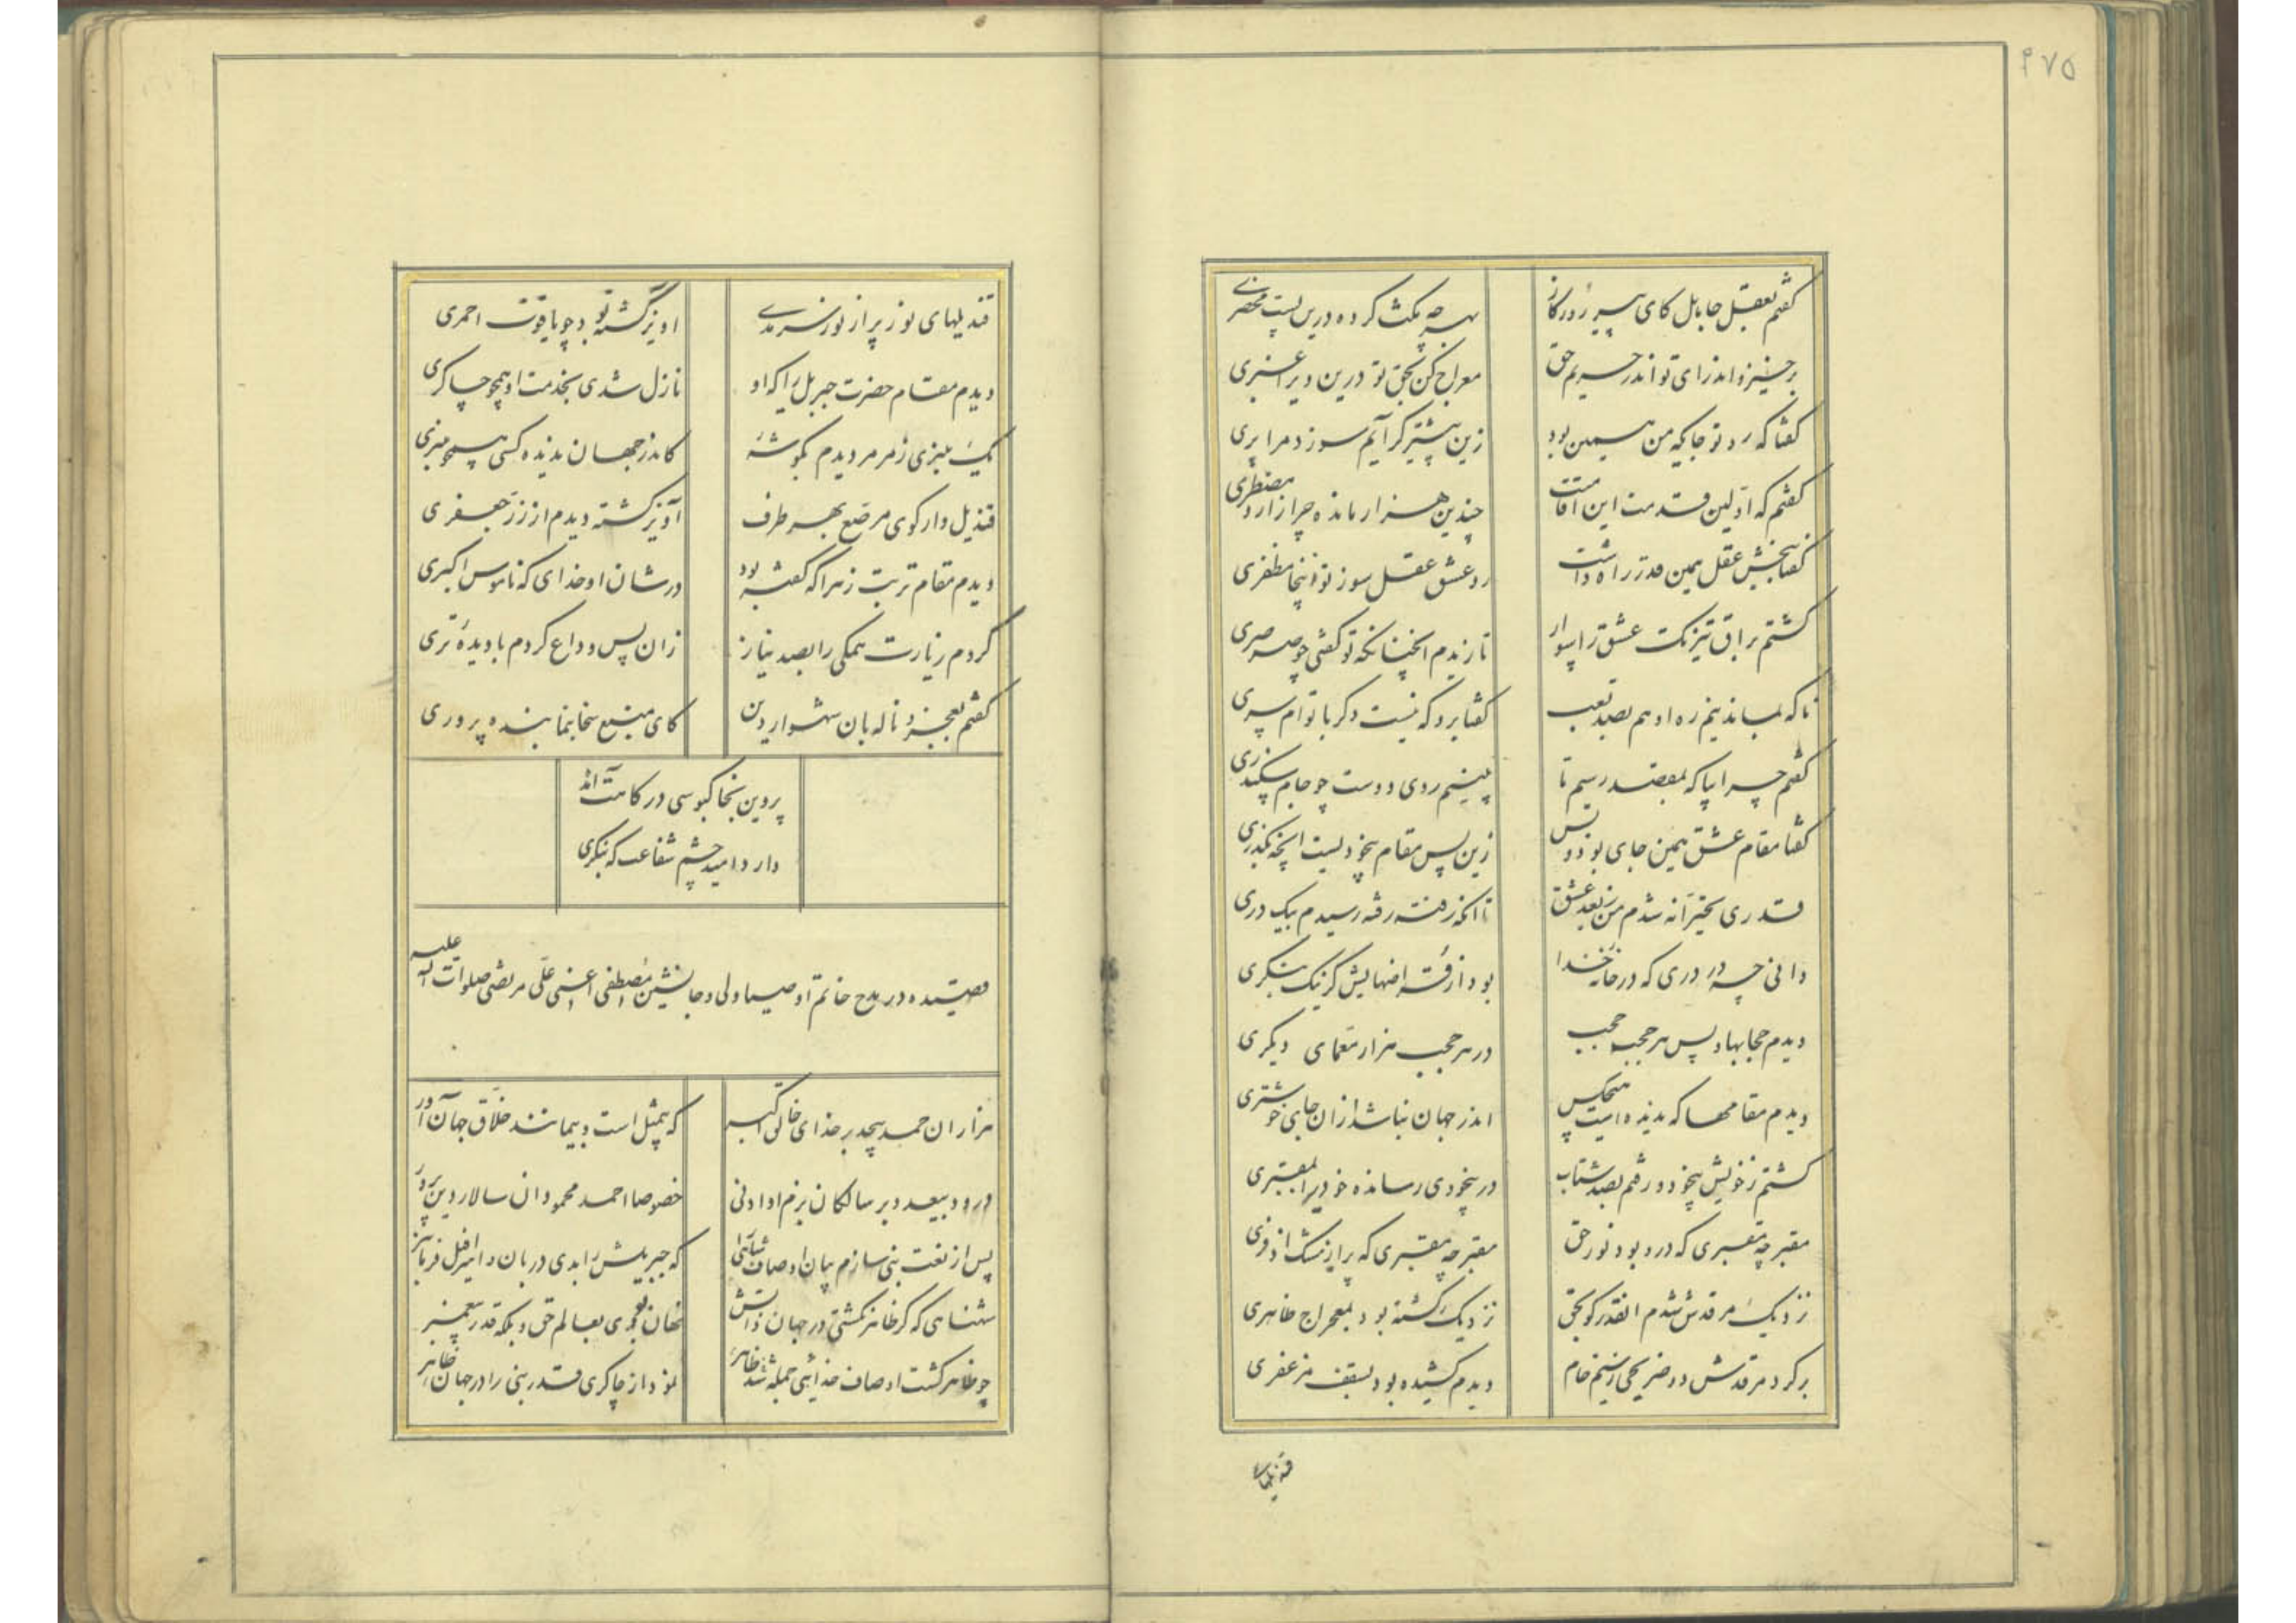 ۴۷۵
گفتم بعقل جابل کای پیر روزگار
بهر چه مکث کرده درین پست محضری
برخیز و اندر ای تو اندر حریم حق
معراج کن بحق تو درین دیر اغبری
گفتا که رو تو جایکه من همین بود
زین پیشتر گر آیم سوزد مرا پری
گفتم که اولین قدمت این اقامتت
چندین هزار مانده چرا زار و مضطری
گفتا ببخش عقل همین قدر راه داشت
رو عشق عقل سوز تو اینجا مظفری
گشتم براق تیزتک عشق را سوار
تا زیدم انچنانکه تو گفتی چو صرصری
ناکه بماند نیم ره او هم بصد تعب
گفتا برو که نیست دگر با توام سری
گفتم چرا بیا که بمقصد رسیم تا
بینیم روی دوست چو جام سکندری
گفتا مقام عشق همین جای بود و بس
زین پس مقام بیخودیست اینچه بگذری
قدری بخیرانه شدم من ز بعد عشق
تا انکه رفته رفته رسیدم بیک دری
دانی چه در دری که در خانه خدا
بود از فرشته اصنهایش گر نیک بنگری
دیدم حجابها و پس هر حجبه حجب
در هر حجب هزار معمای دیگری
دیدم مقامها که ندیده است هیچکس
اندر جهان نباشد از ان جای خوشتری
گشتم ز خویش بیخود و رفتم بصد شتاب
در بیخودی رساندہ خود را بمقبری
مقبر چه مقبری که درو بود نور حق
مقبر چه مقبری که پر از مشک اذفری
نزدیک مرقدش شدم انقدر کو بحق
نزدیک گشته بود بمعراج ظاهری
بر گرد مرقدش دو ضریحی ز سیم خام
دیدم کشیده بود بسقف مزعفری
قندیلهای
قندیلهای نور پر از نور سرمدی
اویز گشته بود چو یاقوت احمری
دیدم مقام حضرت جبریل را که او
نازل شدی بخدمت او همچو چاکری
یک منبری ز مرمر دیدم بگوشه
کاندر جهان ندیده کسی هیچو منبری
قندیل وار گوی مرصع بهر طرف
آویز گشته دیدم از زر جعفری
دیدم مقام تربت زهرا که گفته بود
در شان او خدای که ناموس اکبری
کردم زیارت همگی را بصد نیاز
زان پس وداع کردم با دیدهٔ تری
گفتم بعجز و ناله بان شهسوار دین
کای منبع سخا بنما بنده پروری
پروین بخاکبوسی درگاهت آمد
دارد امید چشم شفاعت که بنگری
قصیده در مدح خاتم اوصیا و لی و جانشین مصطفی اعنی علی مرتضی صلوات الله علیه
هزاران حمد بیحد بر خدای خالق اکبر
که بیمثل است و بیمانند خلاق جهان آور
درود بیعدد بر سالکان بزم او ادنی
خصوصا احمد محمود ان سالار دین پرور
پس از نعت نبی سازم بیان اوصاف شاهی را
که جبریلش را بدی دربان و اسرافیل فرمانبر
شهنشاهی که گر ظاهر نگشتی در جهان ذاتش
نهان بودی بعالم حق و بلکه قدر پیغمبر
چو ظاهر گشت اوصاف خدائی جمله شد ظاهر
نمود از چاکری قدر نبی را در جهان ظاهر